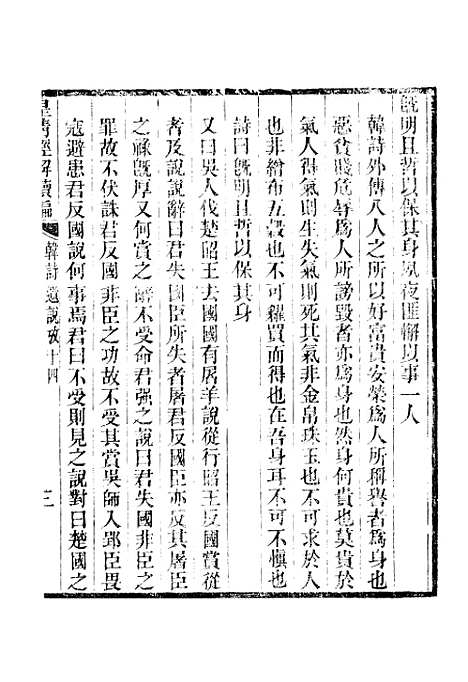 旣明且哲以保其身夙夜匪懈以事一人
韓詩外傳八人之所以好富貴安榮爲人所稱譽者爲身也
惡貧賤危辱爲人所謗毀者亦爲身也然身何貴也莫貴於
氣人得氣則生失氣則死其氣非金帛珠玉也不可求於人
也非繒布五穀也不可糴買而得也在吾身耳不可不愼也
詩曰旣明且哲以保其身
又曰吳人伐楚昭王去國國有屠羊說從行昭王反國賞從
者及說說辭曰君失國臣所失者屠君反國臣亦反其屠臣
之祿旣厚又何賞之辭不受命君强之說曰君失國非臣之
罪故不伏誅君反國非臣之功故不受其賞吳師入郢臣畏
寇避患君反國說何事焉君曰不受則見之說對曰楚國之
皇清經解續編
韓詩遺說攷十四
三